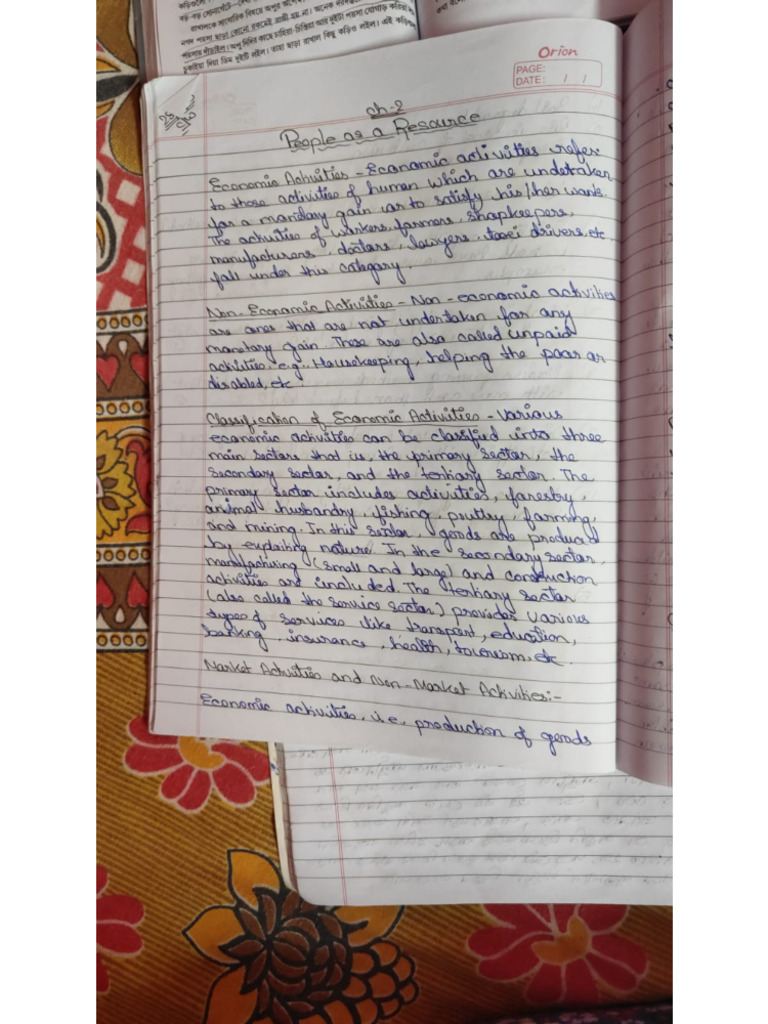 পয়সায় দাঁড়াইল। অপু দিদির কাছে চাহিয়া-চিন্তিয়া আর দুইটা পয়সা যোগাড় করিয়া
চুকাইয়া দিয়া তিন দুইটি লইল। তাহা ছাড়া রাখাল কিছু কড়িও লইল। এই
Orion
PAGE:
DATE: / /
Ch-2
People as a Resource
Economic Activities - Economic activities refer
to those activities of human which are undertaken
for a mandary gain or to satisfy his/her wants.
The activities of workers, farmers, shopkeepers,
manufacturers, doctors, lawyers, taxi drivers, etc
fall under this category.
Non-Economic Activities - Non-economic activities
are ones that are not undertaken for any
monetary gain. These are also called unpaid
activities. e.g., Housekeeping, helping the poor or
disabled, etc
Classification of Economic Activities - Various
economic activities can be classified into three
main sectors that is, the primary sector, the
secondary sector, and the tertiary sector. The
primary sector includes activities, forestry,
animal husbandry, fishing, pultry, farming,
and mining. In this sector, goods are produced
by exploiting nature. In the secondary sector,
manufacturing (small and large) and construction
activities are included. The tertiary sector
(also called the service sector) provides various
types of services like transport, education,
banking, insurance, health, tourism, etc.
Market Activities and Non-Market Activities:-
Economic activities, i.e., production of goods